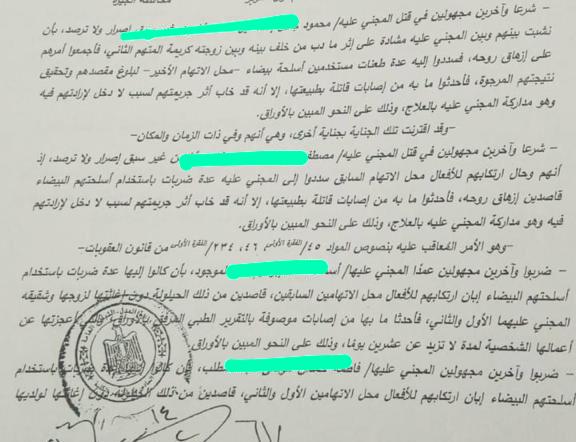 – شرعا وآخرين مجهولين في قتل المجني عليه/ محمود إصرار ولا ترصد، بأن
نشبت بينهم وبين المجني عليه مشادة على إثر ما دب من خلف بينه وبين زوجته كريمة المتهم الثاني، فأجمعوا أمرهم
على إزهاق روحه، فسددوا إليه عدة طعنات مستخدمين أسلحة بيضاء –محل الاتهام الأخير– لبلوغ مقصدهم وتحقيق
نتيجتهم المرجوة، فأحدثوا ما به من إصابات قاتلة بطبيعتها، إلا أنه قد خاب أثر جريمتهم لسبب لا دخل لإرادتهم فيه
وهو مداركة المجني عليه بالعلاج، وذلك على النحو المبين بالأوراق.
–وقد اقترنت تلك الجناية بجناية أخرى، وهي أنهم وفي ذات الزمان والمكان–
– شرعا وآخرين مجهولين في قتل المجني عليه/ مصطفى من غير سبق إصرار ولا ترصد، إذ
أنهم وحال ارتكابهم للأفعال محل الاتهام السابق سددوا إلى المجني عليه عدة ضربات باستخدام أسلحتهم البيضاء
قاصدين إزهاق روحه، فأحدثوا ما به من إصابات قاتلة بطبيعتها، إلا أنه قد خاب أثر جريمتهم لسبب لا دخل لإرادتهم
فيه وهو مداركة المجني عليه بالعلاج، وذلك على النحو المبين بالأوراق.
–وهو الأمر المُعاقب عليه بنصوص المواد ٤٥/الفقرة الأولى، ٤٦، ٢٣٤/الفقرة الأولى من قانون العقوبات–
– ضربوا وآخرين مجهولين عمدًا المجني عليها/ الموجود، بأن كالوا إليها عدة ضربات باستخدام
أسلحتهم البيضاء إبان ارتكابهم للأفعال محل الاتهامين السابقين، قاصدين من ذلك الحيلولة دون إغاثتها لزوجها وشقيقه
المجني عليهما الأول والثاني، فأحدثا ما بها من إصابات موصوفة بالتقرير الطبي المرفق بالأوراق، وقد أعجزتها عن
أعمالها الشخصية لمدة لا تزيد عن عشرين يومًا، وذلك على النحو المبين بالأوراق.
– ضربوا وآخرين مجهولين المجني عليها/ المطلب، بأن كالوا إليها عدة ضربات باستخدام
أسلحتهم البيضاء إبان ارتكابهم للأفعال محل الاتهامين الأول والثاني، قاصدين من ذلك الحيلولة دون إغاثتها لولديها